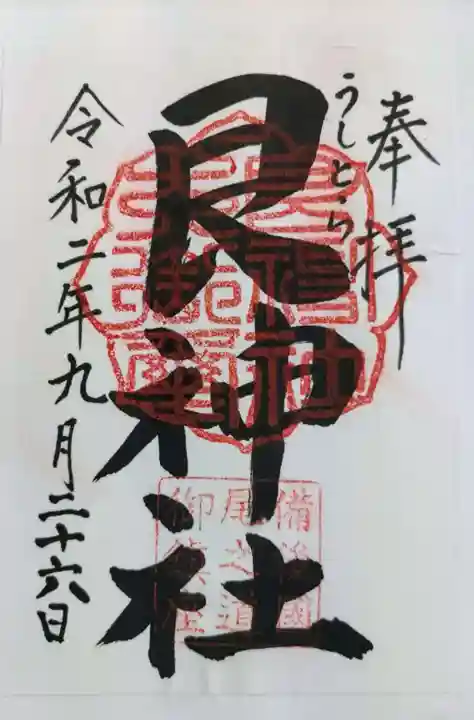 奉拝
うしとら
艮神社
令和二年九月二十六日
備後國
尾之道
御鎮座